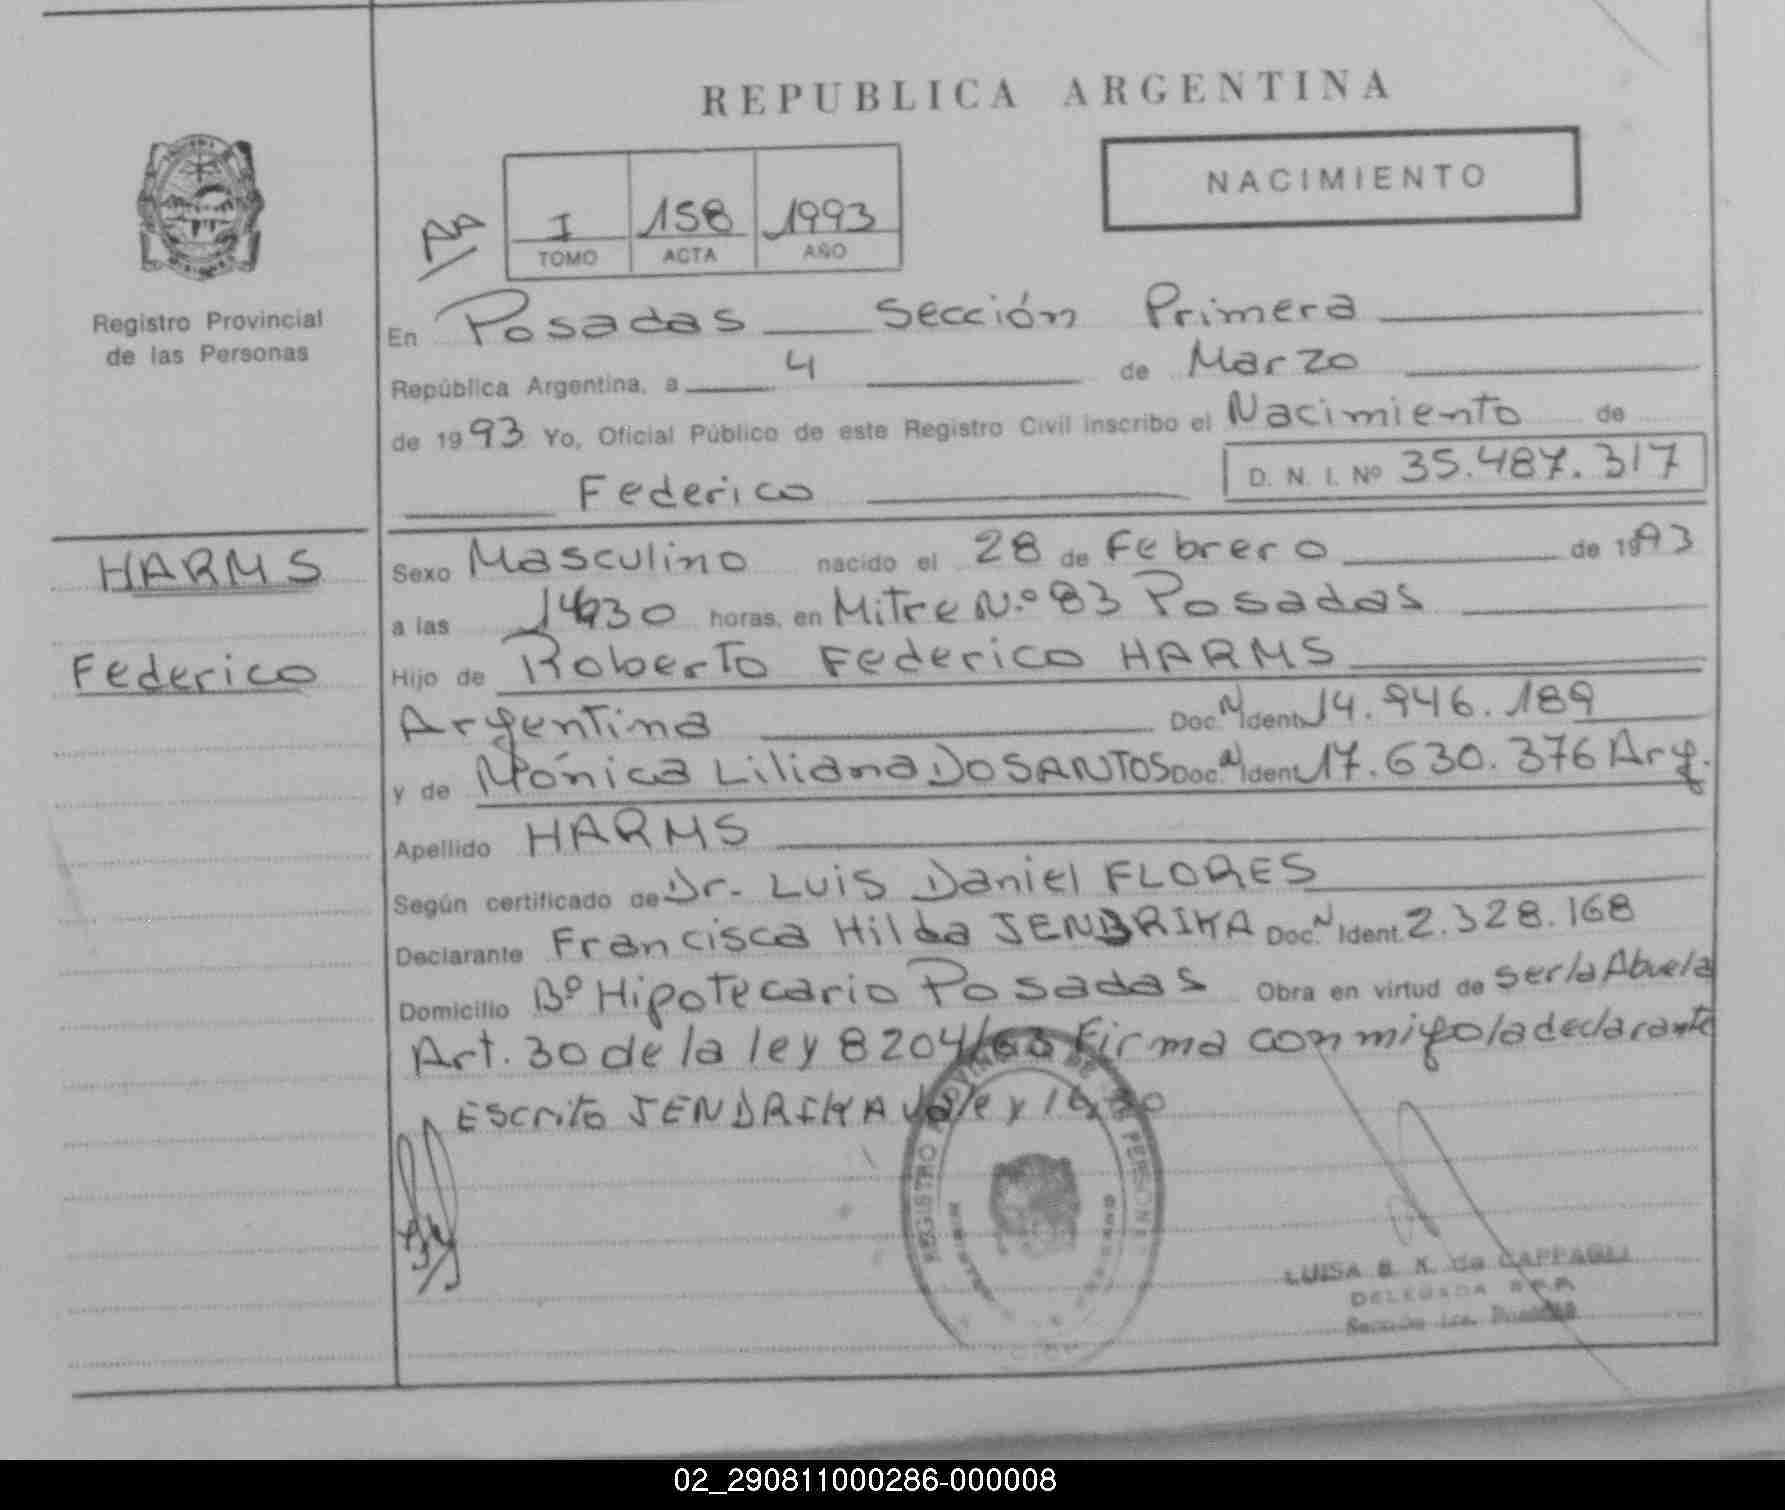 REPUBLICA ARGENTINA
NACIMIENTO
AA
I 158 1993
TOMO ACTA AÑO
Registro Provincial
de las Personas
En Posadas Sección Primera
República Argentina, a 4 de Marzo
de 1993 Yo, Oficial Público de este Registro Civil inscribo el Nacimiento de
Federico D. N. I. Nº 35.487.317
HARMS
Federico
Sexo Masculino nacido el 28 de Febrero de 1993
a las horas, en Mitre N.º 83 Posadas
Hijo de Roberto Federico HARMS
Argentina Doc. N Ident. 14.946.189
y de Mónica Liliana DOSANTOS Doc. N Ident. 17.630.376 Arg.
Apellido HARMS
Según certificado de Dr. Luis Daniel FLORES
Declarante Francisca Hilda JENDRIKA Doc. N Ident. 2.328.168
Domicilio Bº Hipotecario Posadas Obra en virtud de ser la Abuela
Art. 30 de la ley 8204/63 Firma conmigo la declarante
Escrito JENDRIKA vale y
REGISTRO PROVINCIAL DE LAS PERSONAS
LUISA B. K. de CAPPAGLI
DELEGADA R.P.P.
Sección 1ra. Posadas
02_290811000286-000008